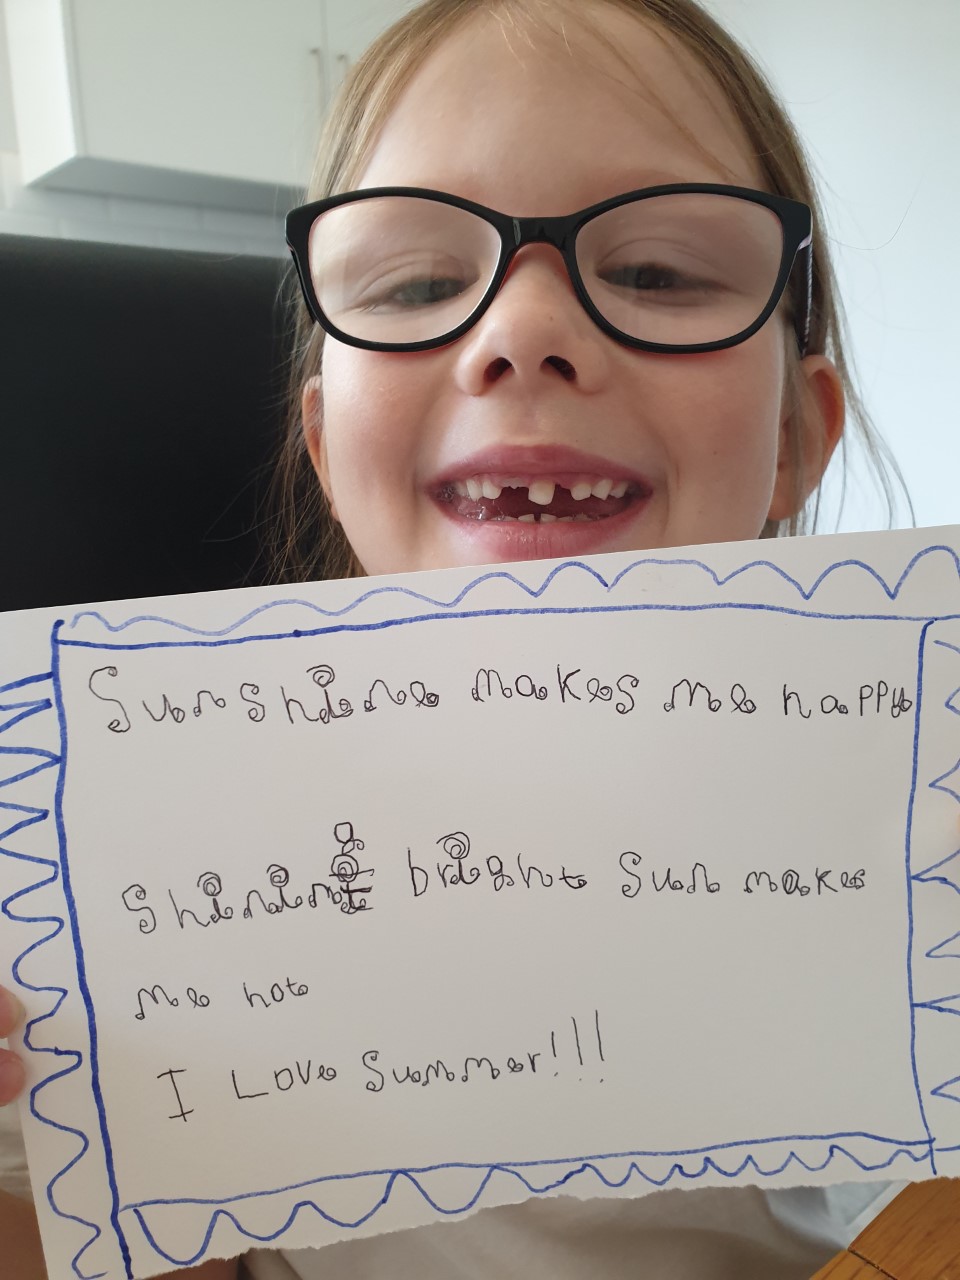 Sunshine makes me happy
Shining bright Sun makes
me hot
I Love Summer!!!